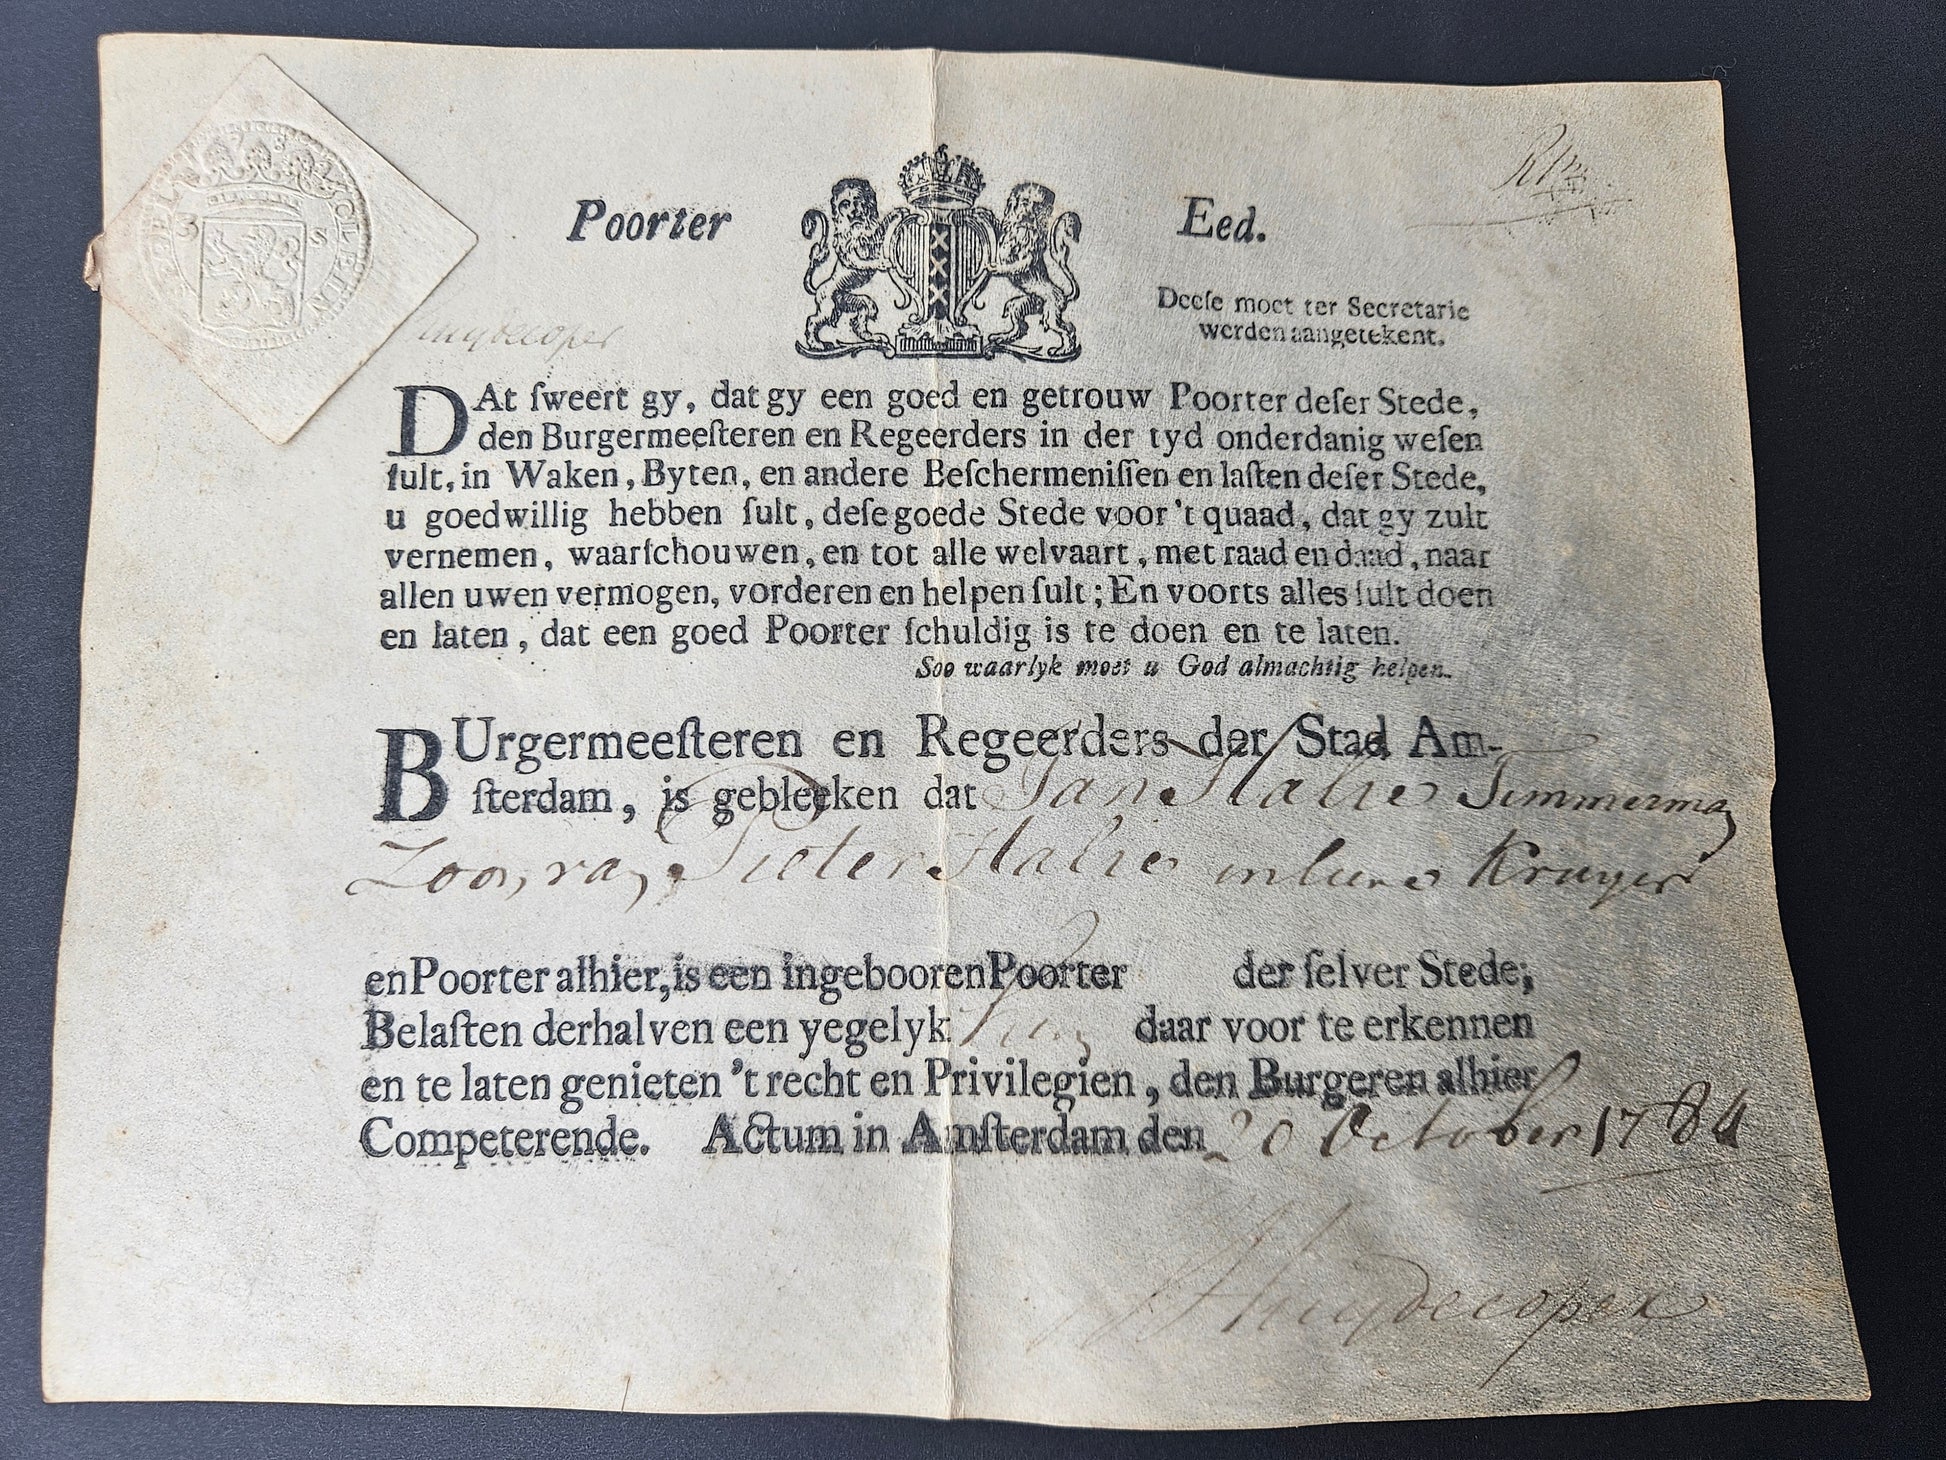 Poorter Eed.
Deeſe moet ter Secretarie
werden aangetekent.
3 S
huydecoper
DAt ſweert gy, dat gy een goed en getrouw Poorter deſer Stede,
den Burgermeeſteren en Regeerders in der tyd onderdanig weſen
ſult, in Waken, Byten, en andere Beſchermeniſſen en laſten deſer Stede,
u goedwillig hebben ſult, deſe goede Stede voor 't quaad, dat gy zult
vernemen, waarſchouwen, en tot alle welvaart, met raad en daad, naar
allen uwen vermogen, vorderen en helpen ſult; En voorts alles ſult doen
en laten, dat een goed Poorter ſchuldig is te doen en te laten.
Soo waarlyk moet u God almachtig helpen.
BUrgermeeſteren en Regeerders der Stad Am-
ſterdam, is gebleeken dat Jan Stalie Timmerman
Zoon van Pieter Stalie in leven Kruyer
en Poorter alhier, is een ingebooren Poorter der ſelver Stede;
Belaſten derhalven een yegelyk hem daar voor te erkennen
en te laten genieten 't recht en Privilegien, den Burgeren alhier
Competerende. Actum in Amſterdam den 20 October 1784
Huydecoper